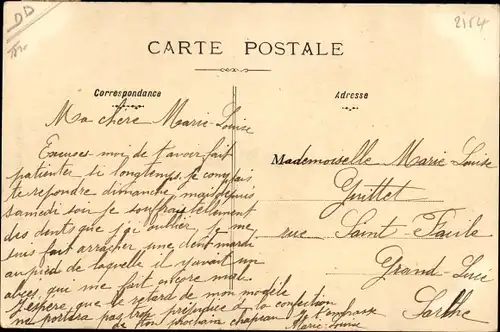 DD
2154
CARTE POSTALE
Correspondance
Adresse
Ma chère Marie-Louise
Excuses-moi de t'avoir fait
patienter si longtemps. Je comptais
te répondre dimanche mais depuis
samedi soir je souffre tellement
des dents que j'ai oublié. Je me
suis fait arracher une dent mardi
au pied de laquelle il y avait un
abcès, qui me fait encore mal.
J'espère que le retard de mon modèle
ne portera pas trop préjudice à la confection
de ton prochain chapeau Je t'embrasse
Marie-Louise
Mademoiselle Marie Louise
Guittet
rue Saint
Grand-Lucé
Sarthe